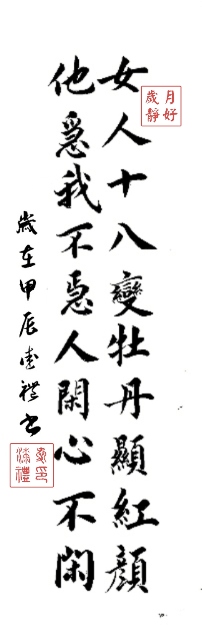 月好歲靜
女人十八變牡丹顯紅顏
他惡我不惡人閑心不閑
歲在甲辰禮书